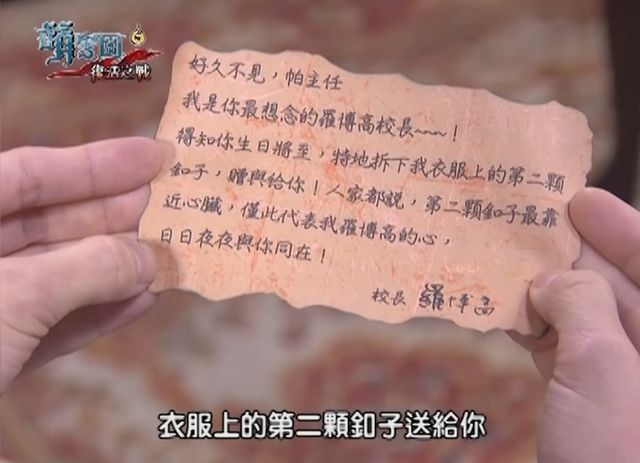 聲音國
復活之戰
好久不見，帕主任
我是你最想念的羅博高校長~~~！
得知你生日將至，特地拆下我衣服上的第二顆
釦子，贈與給你！人家都說，第二顆釦子最靠
近心臟，僅此代表我羅博高的心，
日日夜夜與你同在！
校長 羅博高
衣服上的第二顆釦子送給你